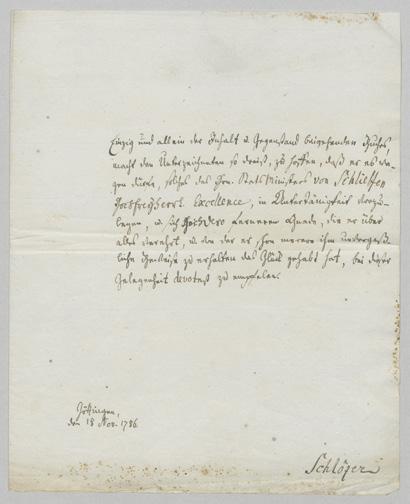 Einzig und allein der Inhalt u. Gegenstand beigehenden Buches,
macht den Unterzeichneten so dreist, zu hoffen, daß er es wa-
gen dürfe, solches des Hrn. StatsMinisters von Schlieffen
Hochfreyherrl. Excellence, in Untertänigkeit vorzu-
legen, u. sich Hochdero fernerem Gnade, die er über
alles verehrt, u. von der er schon merere ihm unvergeß-
liche Beweise zu erhalten das Glück gehabt hat, bei dieser
Gelegenheit devotest zu empfelen.
Göttingen,
den 18 Nov. 1786.
Schlözer